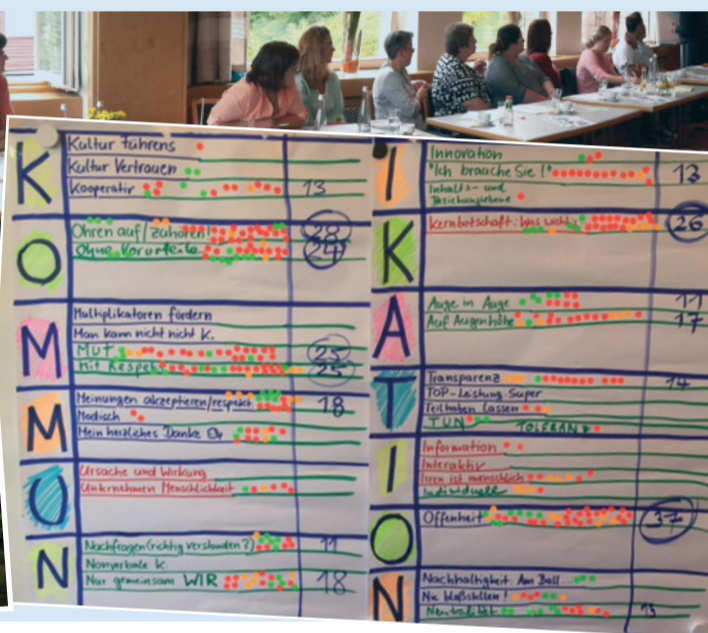 K
Kultur führens
Kultur Vertrauen
Kooperativ 13
O
Ohren auf/zuhören! 28
Ohne Vorurteile 24
M
Multiplikatoren fördern
Man kann nicht nicht K.
Mut 25
Mit Respekt 25
M
Meinungen akzeptieren/respekt. 18
Modisch
Mein herzliches Danke
U
Ursache und Wirkung
Unternehmen Menschlichkeit
N
Nachfragen (richtig verstanden?) 11
Nonverbale K.
Nur gemeinsam WIR 18
I
Innovation
"Ich brauche Sie!" 13
Inhalts- und
Beziehungsebene
K
Kernbotschaft: was wichtig 26
A
Auge in Auge 11
Auf Augenhöhe 17
T
Transparenz 14
TOP-Leistung Super
Teilhaben lassen
TUN TOLERANZ
I
Information
Interaktiv
Irren ist menschlich
Individuell
O
Offenheit 37
N
Nachhaltigkeit: Am Ball
Nie bloßstellen!
Neutralität 13